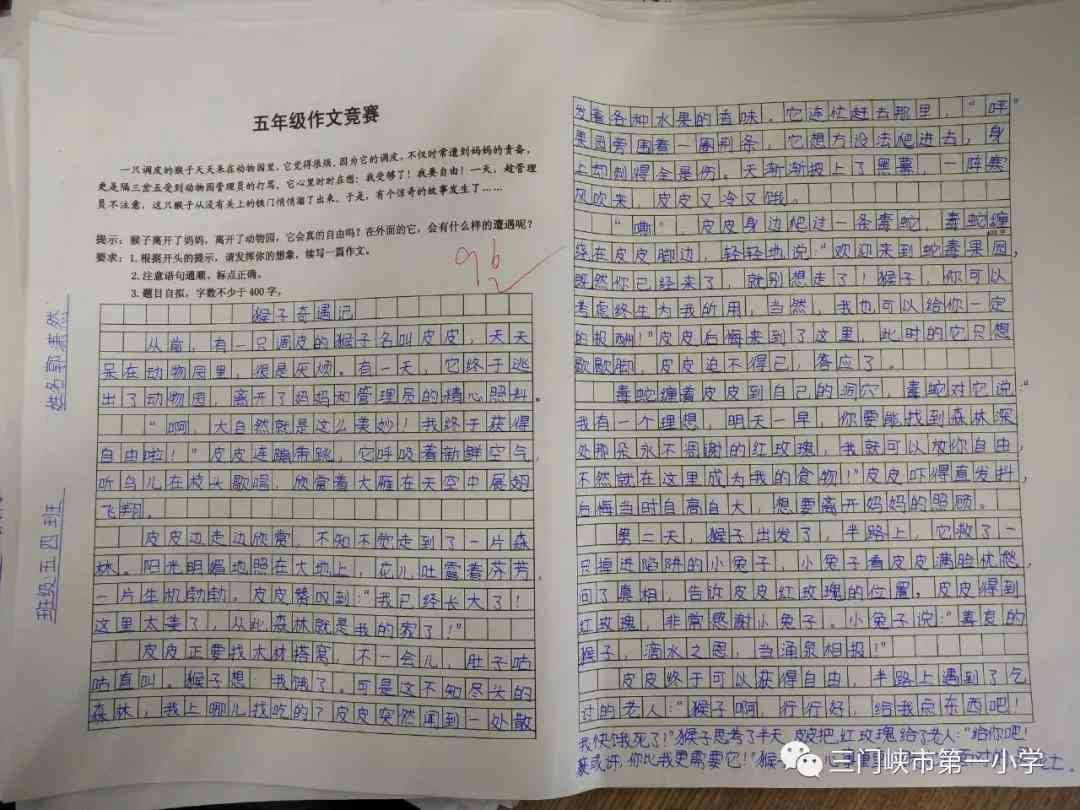 五年级作文竞赛
一只调皮的猴子天天呆在动物园里,它觉得很烦,因为它的调皮,不仅时常遭到妈妈的责备,
更是隔三岔五受到动物园管理员的打骂,它心里时时在想:我受够了!我要自由!一天,趁管理
员不注意,这只猴子从没有关上的铁门悄悄溜了出来。于是,有个惊奇的故事发生了……
提示:猴子离开了妈妈,离开了动物园,它会真的自由吗?在外面的它,会有什么样的遭遇呢?
要求:1.根据开头的提示,请发挥你的想象,续写一篇作文。
2.注意语句通顺、标点正确。
3.题目自拟,字数不少于400字。
96
姓名郭
班级五四班
猴子奇遇记
从前,有一只调皮的猴子名叫皮皮,天天
呆在动物园里,很是厌烦。有一天,它终于逃
出了动物园,离开了妈妈和管理员的精心照料。
“啊,大自然就是这么美妙!我终于获得
自由啦!”皮皮连蹦带跳,它呼吸着新鲜空气,
听鸟儿在枝头歌唱,欣赏着大雁在天空中展翅
飞翔。
皮皮边走边欣赏,不知不觉走到了一片森
林。阳光明媚地照在大地上,花儿吐露着芬芳,
一片生机勃勃。皮皮赞叹到:“我已经长大了!
这里太美了,从此森林就是我的家了!”
皮皮正要找木材搭窝,不一会儿,肚子咕
咕直叫。猴子想:我饿了。可是这不知尽头的
森林,我上哪儿找吃的?皮皮突然闻到一处散
发着各种水果的香味,它连忙赶去那里,“哼”
果园旁围着一圈荆条,它想方设法爬进去,身
上却刺得全是伤。天渐渐披上了黑幕,一阵寒
风吹来,皮皮又冷又饿。
“嘶”,皮皮身边爬过一条毒蛇,毒蛇缠
绕在皮皮脚边,轻轻地说:“欢迎来到蛇毒果园,
既然你已经来了,就别想走了!猴子,你可以
考虑终生为我的用,当然,我也可以给你一定
的报酬!”皮皮后悔来到了这里,此时的它只想
歇歇脚,皮皮迫不得已,答应了。
毒蛇缠着皮皮到自己的洞穴,毒蛇对它说:“
我有一个理想,明天一早,你要能找到森林深
处那朵永不凋谢的红玫瑰,我就可以放你自由,
不然就在这里成为我的食物!”皮皮吓得直发抖,
后悔当时自高自大,想要离开妈妈的照顾。
第二天,猴子出发了,半路上,它救了一
只掉进陷阱的小兔子,小兔子看皮皮满脸忧愁,
问了真相,告诉皮皮红玫瑰的位置,皮皮得到
红玫瑰,非常感谢小兔子。小兔子说:“善良的
猴子,滴水之恩,当涌泉相报!”
皮皮终于可以获得自由,半路上遇到了乞
讨的老人:“猴子啊,行行好,给我点东西吧!
我快饿死了!”猴子思考了半天,皮皮把红玫瑰给了老人:“给你吧!
或许,你比我更需要它!”猴
三门峡市第一小学